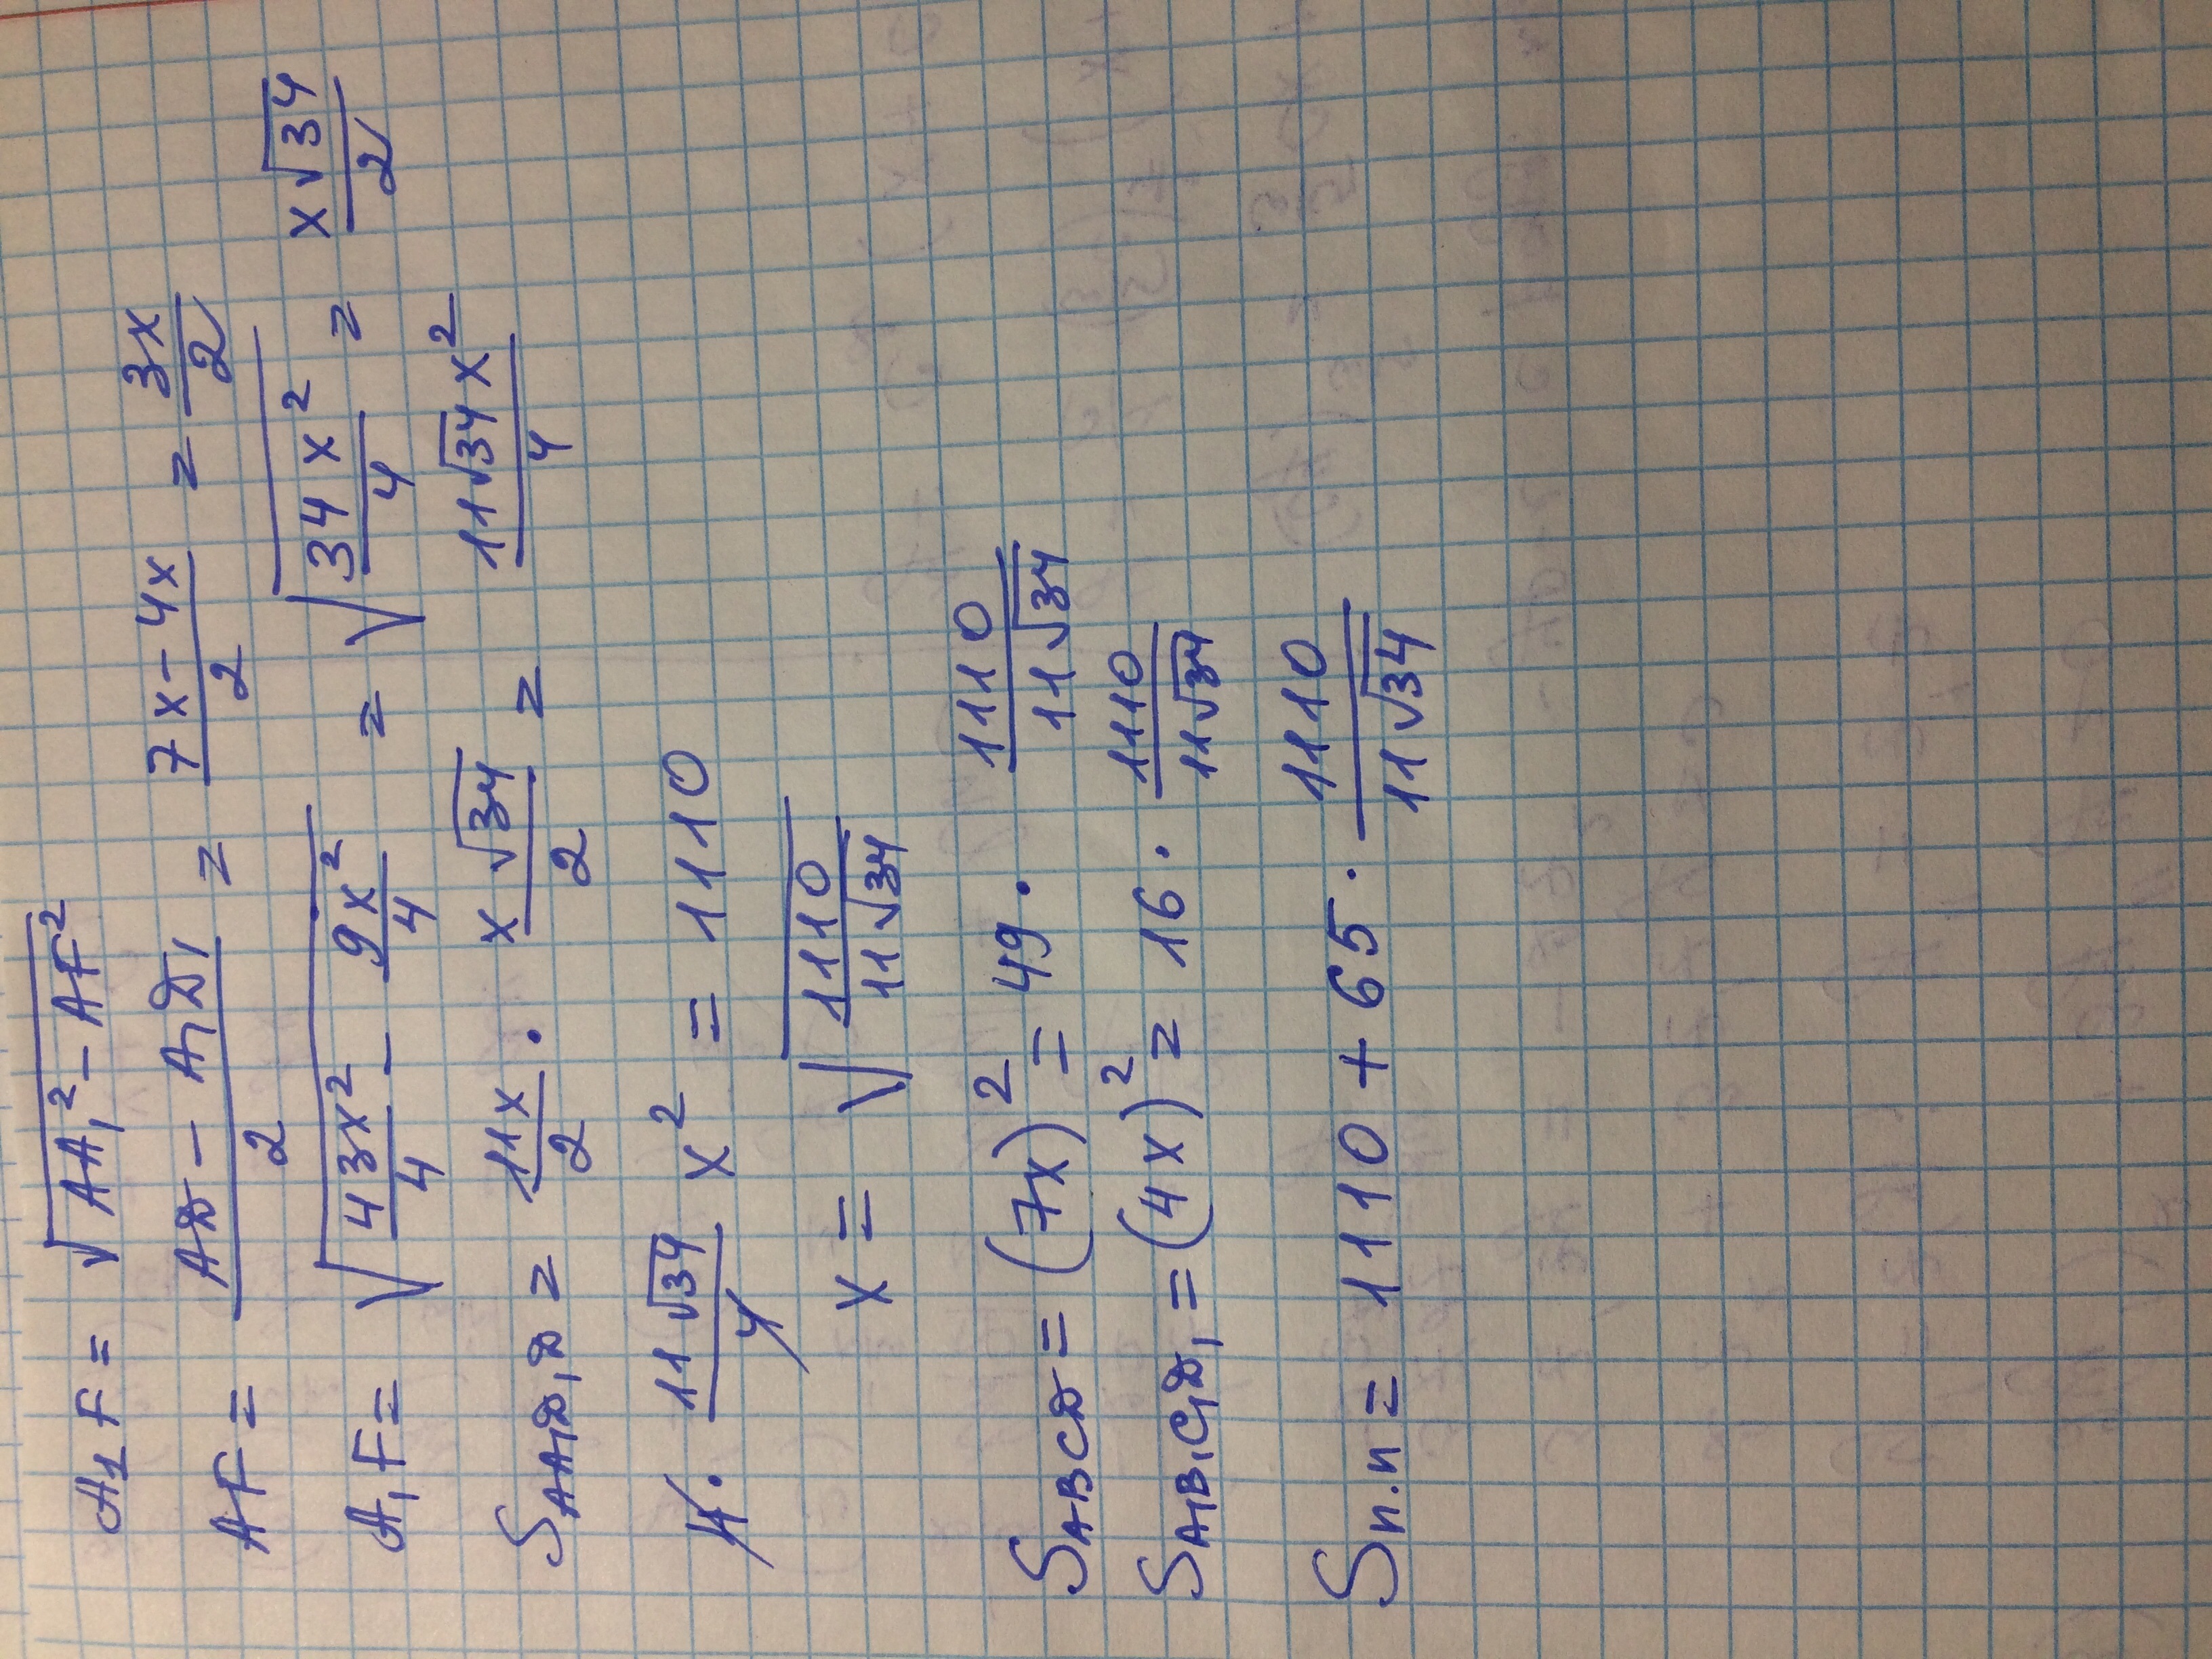 A₁F = √(AA₁² - AF²)
AF = (AD - A₁D₁)/2 = (7x - 4x)/2 = 3x/2
A₁F = √(43x²/4 - 9x²/4) = √(34x²/4) = x√34/2
S_AA₁D₁D = 11x/2 · x√34/2 = 11√34x²/4
4 · 11√34/4 x² = 1110
x = √(1110/11√34)
S_ABCD = (7x)² = 49 · 1110/11√34
S_A₁B₁C₁D₁ = (4x)² = 16 · 1110/11√34
Sп.п = 1110 + 65 · 1110/11√34